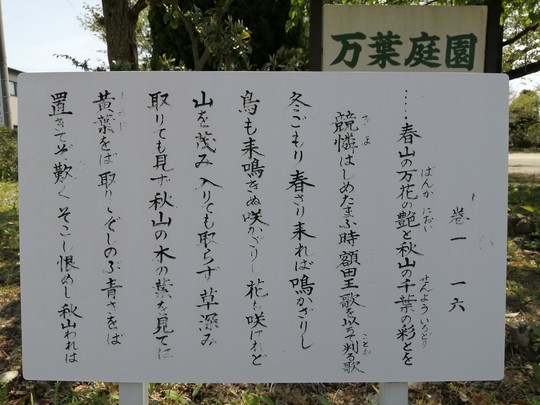 万葉庭園
巻一 一六
……春山の万花の艶と秋山の千葉の彩とを
ばんか におい せんよう いろどり
競憐はしめたまふ時額田王歌を以て判る歌
きま ことわ
冬ごもり 春さり来れば 鳴かざりし
鳥も来鳴きぬ 咲かざりし 花も咲けれど
山を茂み 入りても取らず 草深み
取りても見ず 秋山の 木の葉を見ては
黄葉をば 取りてぞしのふ 青きをば
もみじ
置きてぞ歎く そこし恨めし 秋山われは